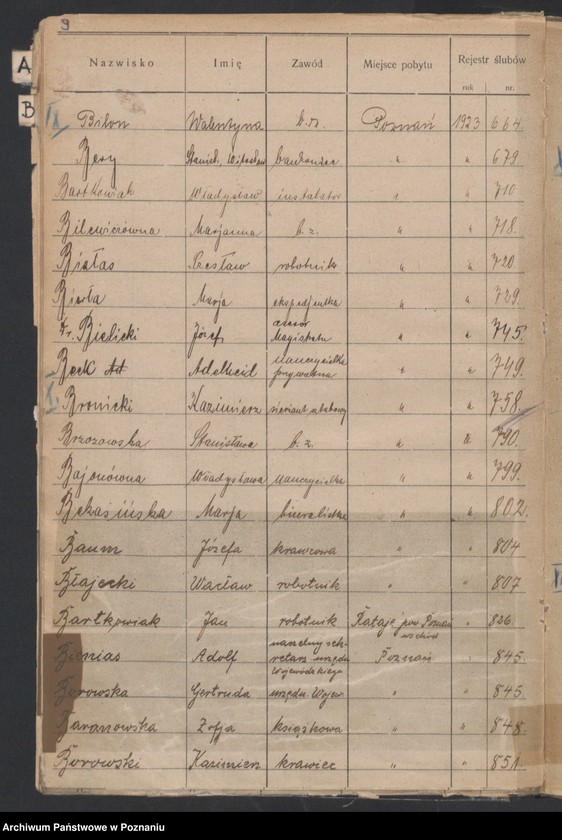 9
Nazwisko Imię Zawód Miejsce pobytu Rejestr ślubów
rok nr.
A
B
IX Bilon Walentyna b.z. Poznań 1923 664.
Bery Stanisł. bankowiec " " 679
Bartkowiak Władysław instalator " " 710
Bilewiczówna Marjanna b. z. " " 718.
Białas Czesław robotnik " " 720
Bierła Marja ekspedjentka " " 729.
Dr. Bielicki Józef asesor Magistratu " " 745.
Beck Adelheid nauczycielka prywatna " " 749.
X. Bronicki Kazimierz sierżant sztabowy " " 758.
Brzozowska Stanisława b. z. " " 790.
Bajonówna Władysława nauczycielka " " 799.
Bekasińska Marja biuralistka " " 802.
Baum Józefa krawcowa " " 804
Błajecki Wacław robotnik " " 807
Bartkowiak Jan robotnik Rataje pow. Poznań wschód " 826
Bienias Adolf naczelny sekretarz urzędu Wojewódzkiego Poznań " 845.
Borowska Gertruda urzędn. Wojew. " " 845.
Baranowska Zofja książkowa " " 848.
Borowski Kazimierz krawiec " " 851.
Archiwum Państwowe w Poznaniu